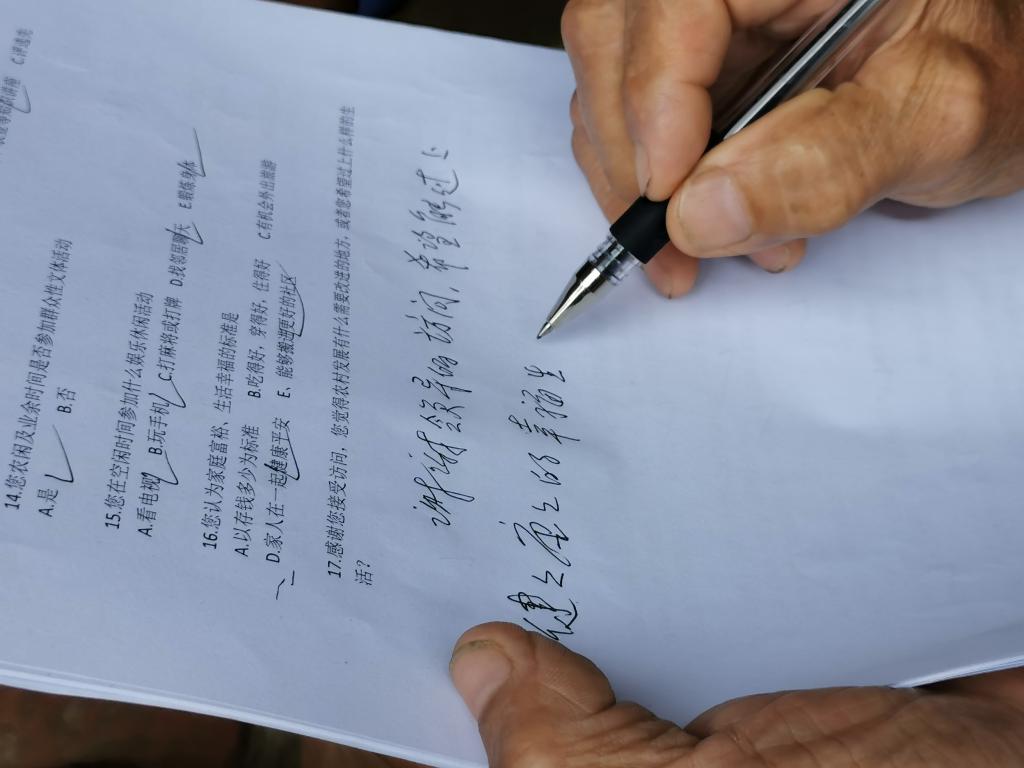 C.评选先
14.您农闲及业余时间是否参加群众性文体活动
A.是 B.否
15.您在空闲时间参加什么娱乐休闲活动
A.看电视 B.玩手机 C.打麻将或打牌 D.找邻居聊天 E.锻炼身体
16.您认为家庭富裕、生活幸福的标准是
A.以存钱多少为标准 B.吃得好，穿得好，住得好 C.有机会外出旅游
D.家人在一起健康平安 E、能够搬进更好的社区
17.感谢您接受访问，您觉得农村发展有什么需要改进的地方，或者您希望过上什么样的生
活？
谢谢领导的访问，希望能过上
健上康上的幸福生